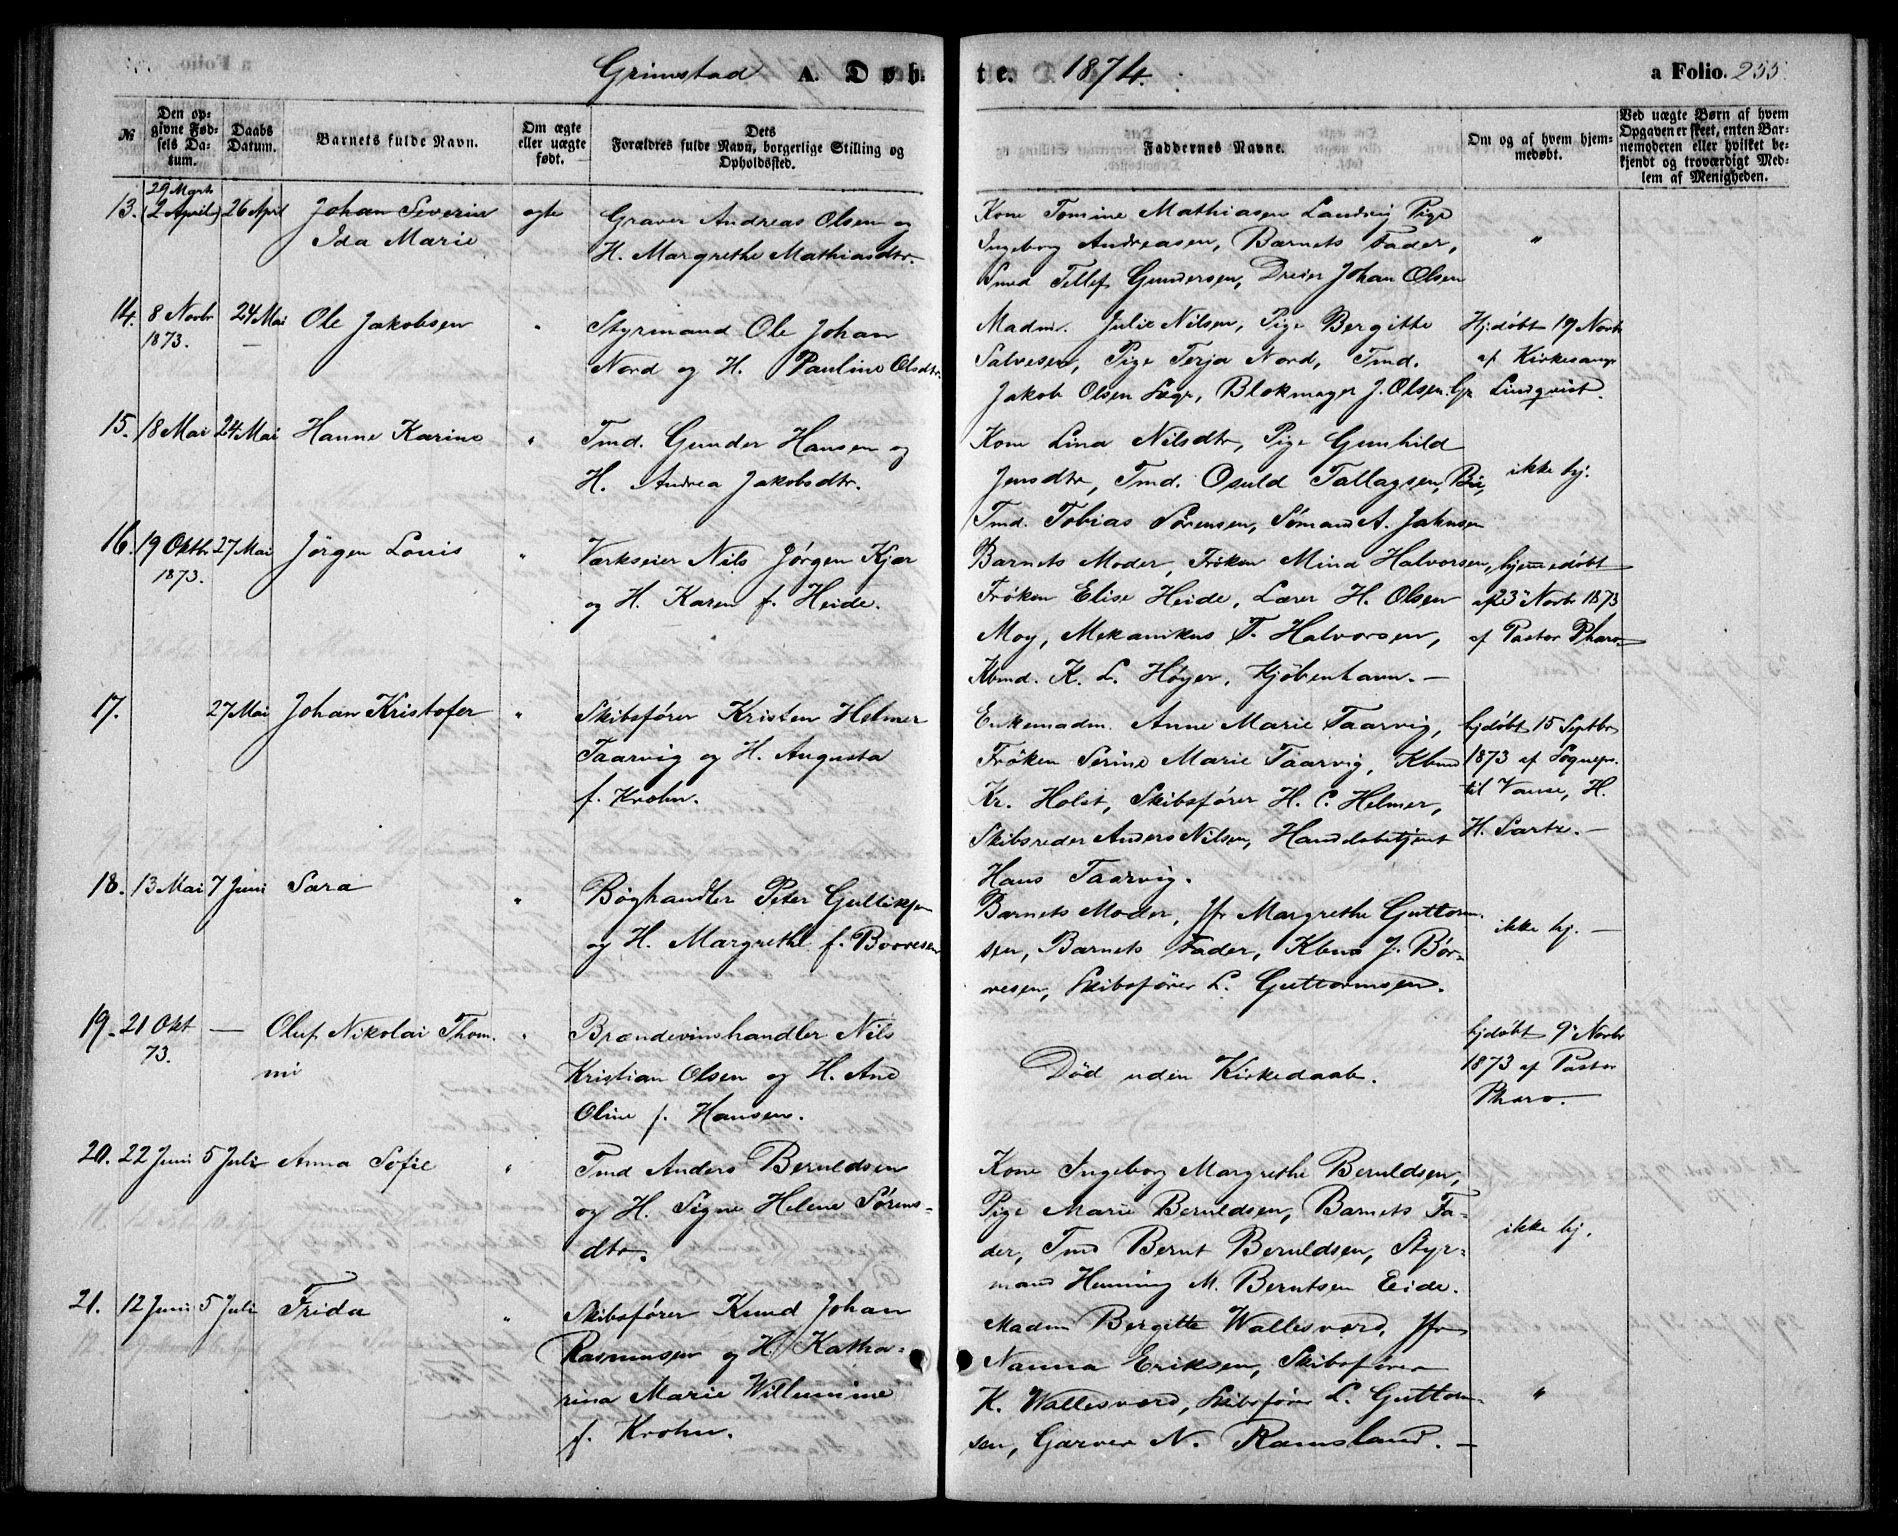 Grimstad A. Døbte. 1874. a Folio. 255.
№
Den opgivne Fødsels Datum.
Daabs Datum.
Barnets fulde Navn.
Om ægte eller uægte født.
Dets Forældres fulde Navn, borgerlige Stilling og Opholdssted.
Faddernes Navne.
Om og af hvem hjemmedøbt.
Ved uægte Børn af hvem Opgaven er skeet, enten Barnemoderen eller hvilket bekjendt og troværdigt Medlem af Menigheden.
13. 29 Marts (2 April) 26 April Johan Severin
Ida Marie
ægte
Graver Andreas Olsen og
H. Margrethe Mathiasdtr.
Kone Tomine Mathiasen Landvig Pige
Ingeborg Andreasen, Barnets Fader,
Smed Tellef Gundersen, Dreier Johan Olsen
"
14. 8 Novbr 1873. 24 Mai Ole Jakobsen "
Styrmand Ole Johan
Nord og H. Pauline Olsdtr.
Madm. Julie Nilsen, Pige Bergitte
Salvesen, Pige Terja Nord, Tmd.
Jakob Olsen Søgr, Blokmager J. Olsen. Gr
Hjdøbt 19 Novbr
af Kirkesangr
Lindqvist.
15. 18 Mai 24 Mai Hanne Karine "
Tmd. Gunder Hansen og
H. Andrea Jakobsdtr.
Kone Lina Nilsdtr, Pige Gunhild
Jensdtr, Tmd. Osuld Tallagsen, Bie,
Tmd. Tobias Sørensen, Sømand A. Jahnsen
ikke hj.
16. 19 Oktbr 1873. 27 Mai Jørgen Louis "
Værkseier Nils Jørgen Kjær
og H. Karen f. Heide.
Barnets Moder, Frøken Mina Halvorsen,
Frøken Elise Heide, Lærer H. Olsen
Moy, Mekanikus T. Halvorsen,
Kbmd. K. L. Høyer, Kjøbenhavn. —
hjemedøbt
23 Novbr 1873
af Pastor Pharo
17. 27 Mai Johan Kristofer "
Skibsfører Kristen Helmer
Taarvig og H. Augusta
f. Krohn.
Enkemadm. Anne Marie Taarvig,
Frøken Serine Marie Taarvig, Kbmd
Kr. Holst, Skibsfører H. C. Helmer,
Skibsreder Anders Nilsen, Handelsbetjent
Hans Taarvig.
hjdøbt 15 Septbr
1873 af Sognepr.
til Vanse, H.
H. Sartz. —
18. 13 Mai 7 Juni Sara "
Boghandler Peter Gulliksen
og H. Margrethe f. Boovesen
Barnets Moder, Jfr Margrethe Guttorm-
sen, Barnets Fader, Kbmd J. Bør-
resen, Skibsfører L. Guttormsen.
ikke hj. —
19. 21 Okt 73. — Oluf Nikolai Thom-
mi "
Brændevinshandler Nils
Kristian Olsen og H. Ane
Oline f. Hansen.
Død uden Kirkedaab.
hjdøbt 9 Novbr
1873 af Pastor
Pharo. —
20. 22 Juni 5 Juli Anna Sofie "
Tmd Anders Beruldsen
og H. Signe Helene Sørens-
dtr.
Kone Ingeborg Margrethe Beruldsen,
Pige Marie Beruldsen, Barnets Fa-
der, Tmd Bernt Beruldsen, Styr-
mand Henning M. Berntsen Eide.
ikke hj.
21. 12 Juni 5 Juli Frida "
Skibsfører Knud Johan
Rasmussen og H. Katha-
rina Marie Willumine
f. Krohn.
Madm Bergitte Wallesværd, Jfr
Nanna Eriksen, Skibsfører
K. Wallesværd, Skibsfører L. Guttorm-
sen, Garver N. Ramsland. —
"